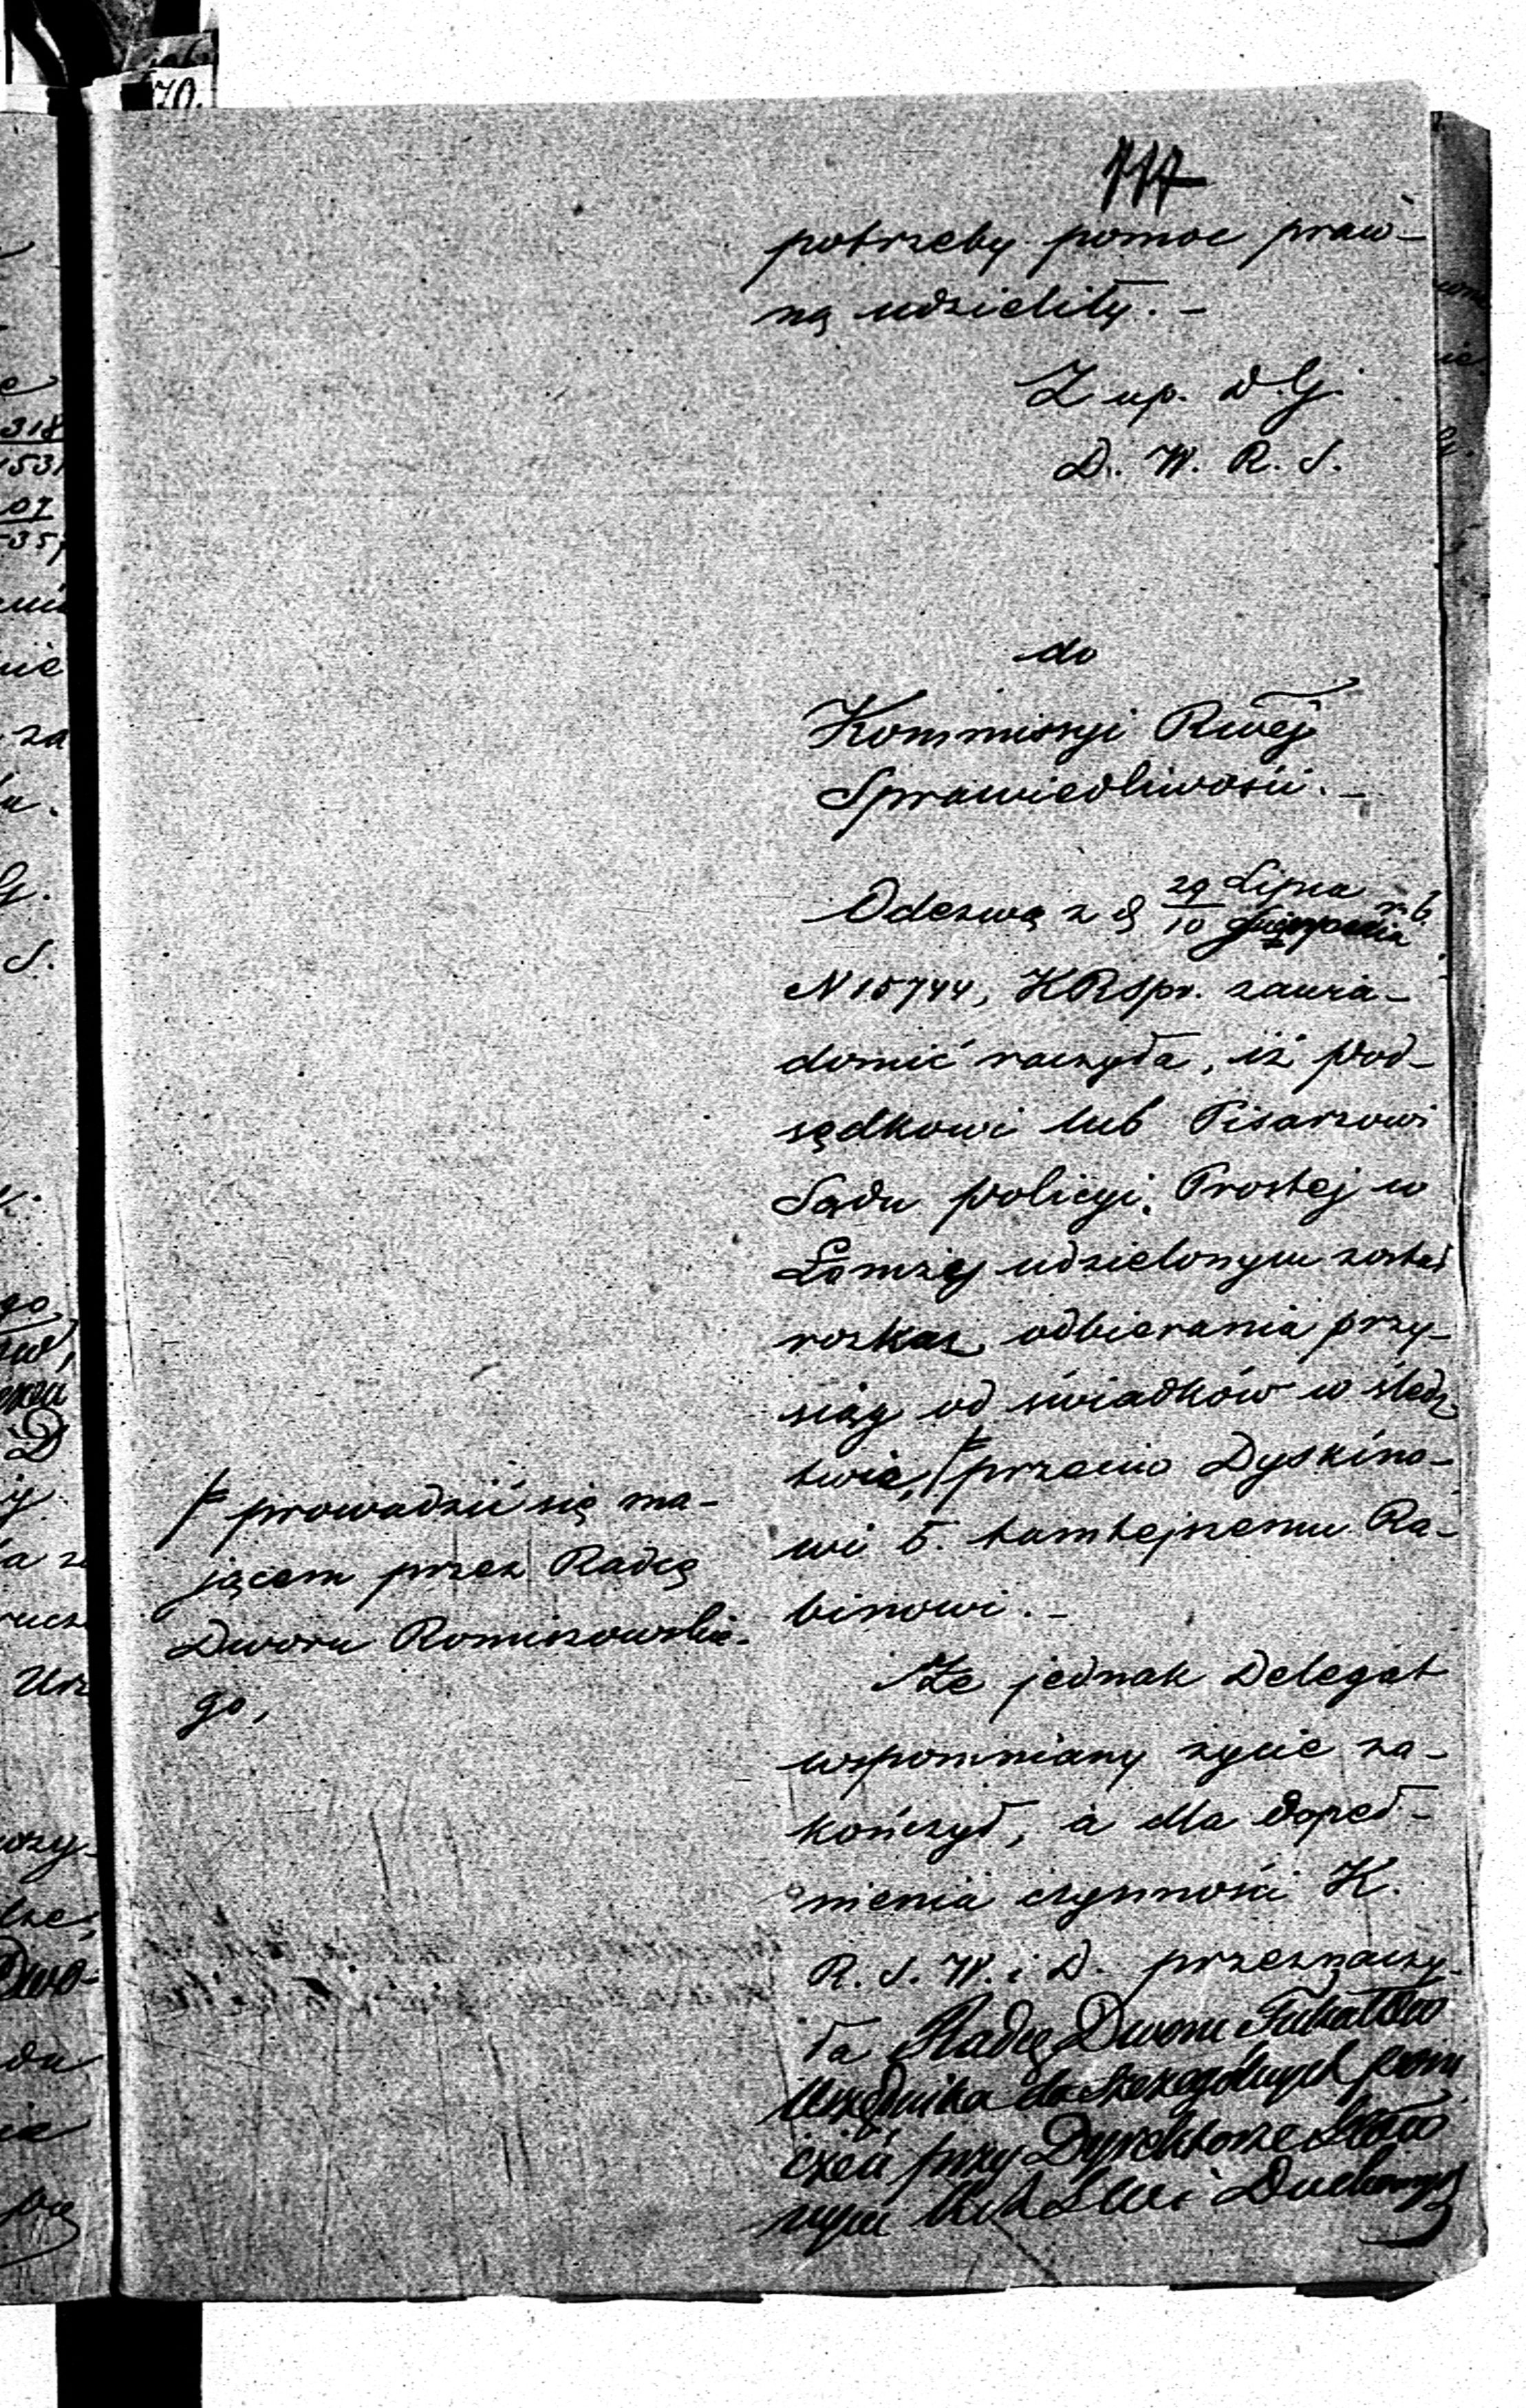 117
potrzeby pomoc praw-
ną udzieliły. -
Z up. D. G.
D. W. R. S.
do
Kommissyi Rwej
Sprawiedliwości. -
Odezwą z d 29 Lipca r. b.
10 Sierpnia
N 15744, KRSpr. zawia-
domić raczyła, iż Pod-
sędkowi lub Pisarzowi
Sądu Policyi Prostej w
Łomży udzielonym został
rozkaz odbierania przy-
siąg od świadków w śledz
twie, przeciw Dyskino-
wi b. tamtejszemu Ra-
binowi. -
prowadzić się ma-
jącem przez Radcę
Dworu Romiszowskie-
go,
Że jednak Delegat
wspomniany życie za-
kończył, a dla dopeł-
nienia czynności K.
R. S. W. i D. przeznaczy-
ła Radcę Dworu
Urzędnika do szczególnych poru
czeń przy Dyrektorze
Duchownych